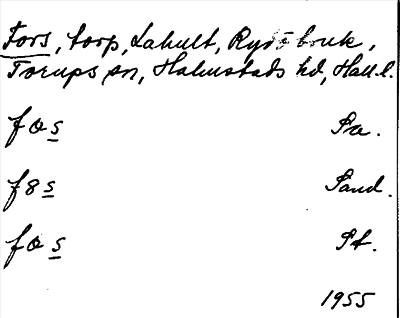 Fors, torp, Lahult, Rydö bruk,
Torups sn, Halmstads hd, Hall. l.
fos Pa.
f8s Sand.
fos Pt.
1955